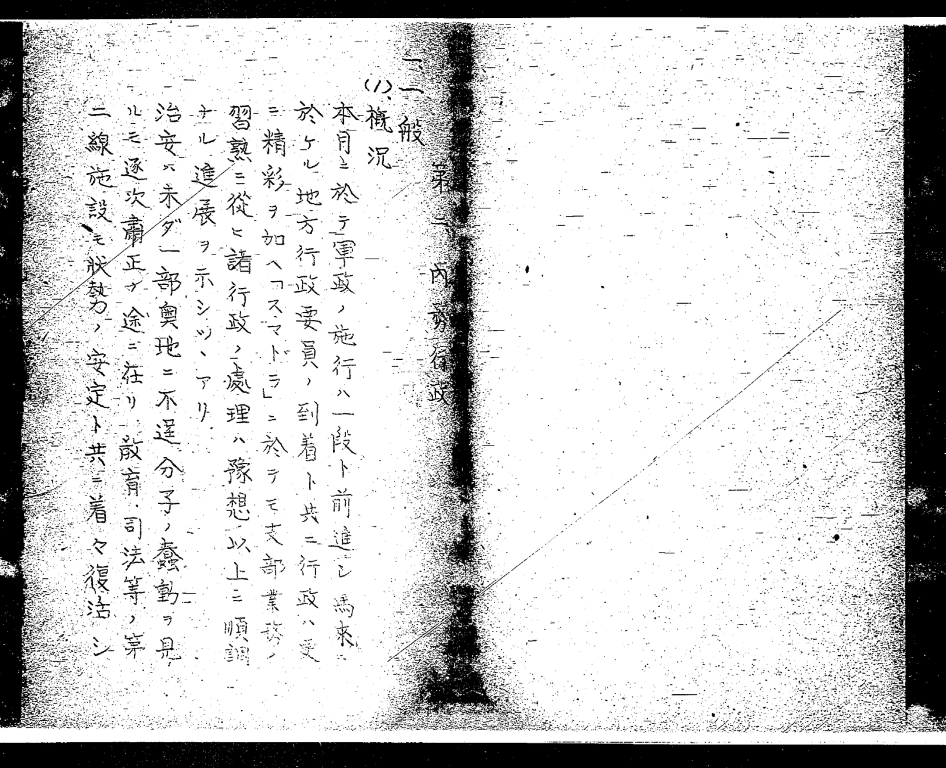 第二 內務行政
一、一般
(1)、概況
本月ニ於テ軍政ノ施行ハ一段ト前進シ馬來ニ
於ケル地方行政要員ノ到着ト共ニ行政ハ更
ニ精彩ヲ加ヘ「スマトラ」ニ於テモ支部業務ノ
習熟ニ從ヒ諸行政ノ處理ハ豫想以上ニ順調
ナル進展ヲ示シツヽアリ
治安ハ未ダ一部奧地ニ不逞分子ノ蠢動ヲ見
ルモ逐次肅正ノ途ニ在リ敎育、司法等ノ第
二線施設モ狀勢ノ安定ト共ニ着々復活シ